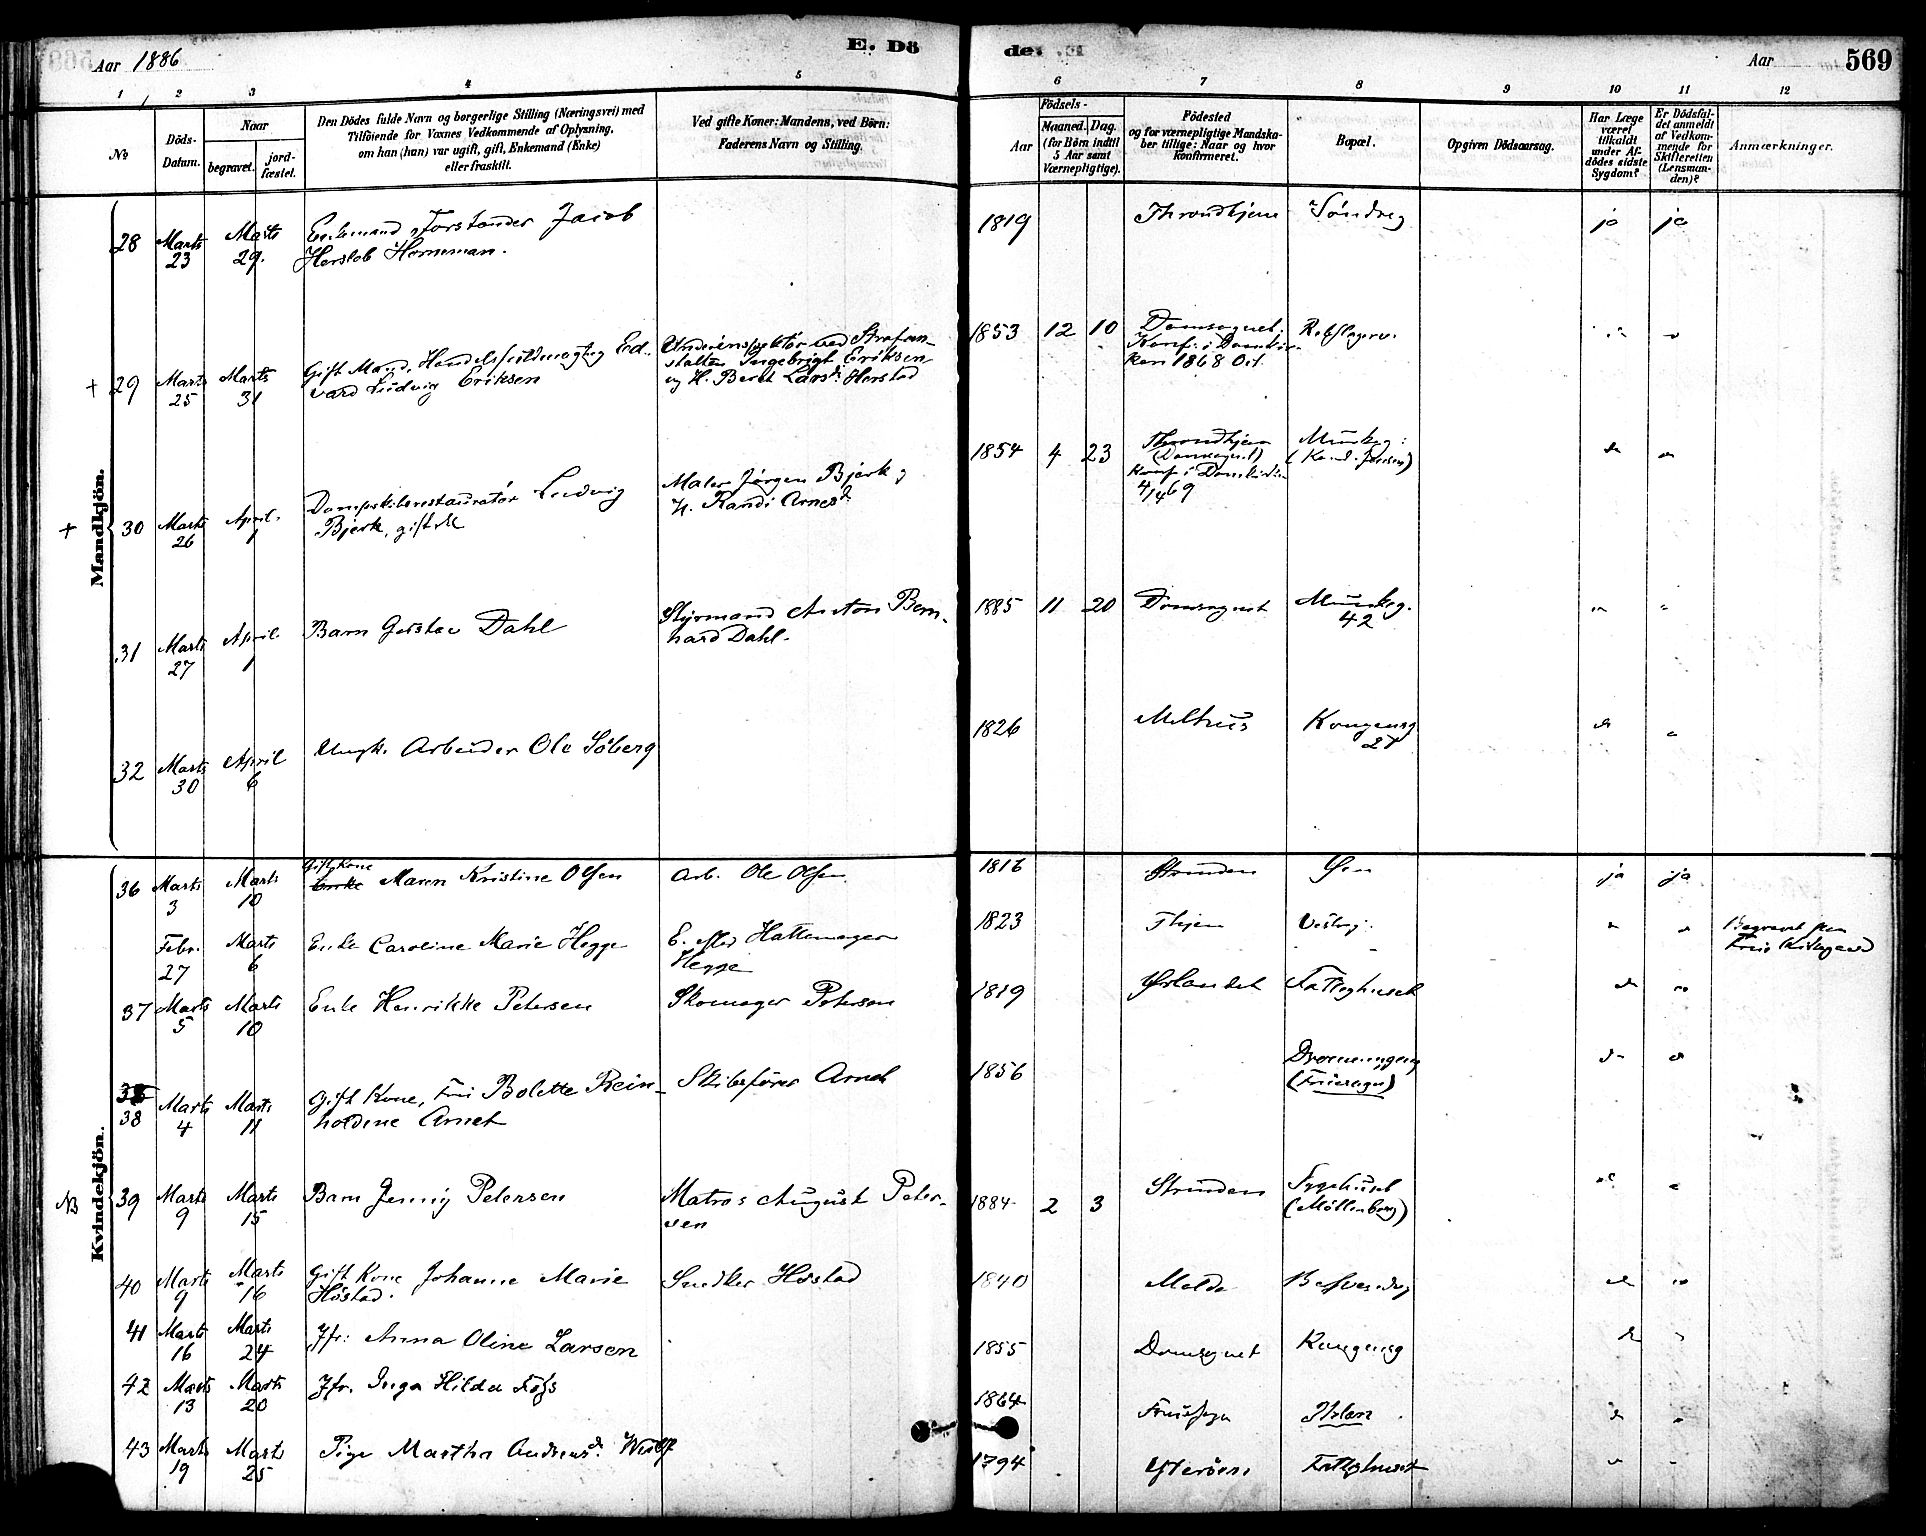 Aar 1886
E. Dö
de.
Aar
569
1 2 3 4 5 6 7 8 9 10 11 12
No
Döds-Datum.
Naar
begravet.
jord-fæstet.
Den Dödes fulde Navn og borgerlige Stilling (Næringsvei) med
Tilföiende for Voxnes Vedkommende af Oplysning,
om han (hun) var ugift, gift, Enkemand (Enke)
eller fraskilt.
Ved gifte Koner: Mandens, ved Börn:
Faderens Navn og Stilling.
Födsels-
Aar
Maaned. Dag.
(for Börn indtil
5 Aar samt
Værnepligtige).
Födested
og for værnepligtige Mandska-
ber tillige: Naar og hvor
konfirmeret.
Bopæl.
Opgiven Dödsaarsag.
Har Læge
været
tilkaldt
under Af-
dödes sidste
Sygdom?
Er Dödsfal-
det anmeldt
af Vedkom-
mende for
Skifteretten
(Lensman-
den)?
Anmærkninger.
Mandkjön.
28 Marts 23 Marts 29. Enkemand, Forstander Jacob
Hersleb Horneman. 1819 Throndhjem Söndreg ja ja
+ 29 Marts 25 Marts 31 Gift Mand, Handelsfuldmægtig Ed-
vard Ludvig Eriksen
Underinspektör ved Strafan-
stalten Ingebrigt Eriksen
og H. Berit Larsd. Herstad
1853 12 10 Domsognet.
Konf. i Domkir-
ken 1868 Oct.
Rebslagerv. " "
+ 30 Marts 26 April 1 Dampskibsrestauratör Ludvig
Bjerk, gift
Maler Jörgen Bjerk og
H. Randi Arnesd.
1854 4 23 Throndhjem
(Domsognet)
Konf. i Domkirken
4/4 69
Munkeg:
" "
31 Marts 27 April 1 Barn Gustav Dahl
Styrmand Anton Bern-
hard Dahl.
1885 11 20 Domsognet Munkeg.
42 " "
32 Marts 30 April 6 Ungk. Arbeider Ole Söberg
1826 Melhus Kongensg
27 " "
Kvindekjön.
36 Marts 3 Marts 10 Gift Kone
Enke Maren Kristine Olsen Arb. Ole Olsen. 1816 Strinden Øen ja ja
Febr. 27 Marts 6 Enke Caroline Marie Hegge E. efter Hattemager
Hegge 1823 Thjem " " Begravet paa
Frue Kirkegaard
37 Marts 5 Marts 10 Enke Henrikke Petersen Skomager Petersen 1819 Ørlandet Fattighuset " "
38 Marts 4 Marts 11 Gift Kone, Fru Bolette Rein-
holdine Arnet Skibsförer Arnet 1856 Dronningensg
(Fruesogn) " "
NB 39 Marts 9 Marts 15 Barn Jenny Petersen
Matros August Peter-
sen 1884 2 3 Strinden Sygehuset
(Möllenberg) " "
40 Marts 9 Marts 16 Gift Kone Johanne Marie
Höstad. Snedker Höstad 1840 Molde " "
41 Marts 16 Marts 24 Jfr: Anna Oline Larsen 1855 Domsognet Kongensg " "
42 Marts 13 Marts 20 Jfr. Inga Hilda 1864 Fruesogn Ihlen " "
43 Marts 19 Marts 25 Pige Martha Andreasd. Wulf 1794 Ytteröen Fattighuset " "